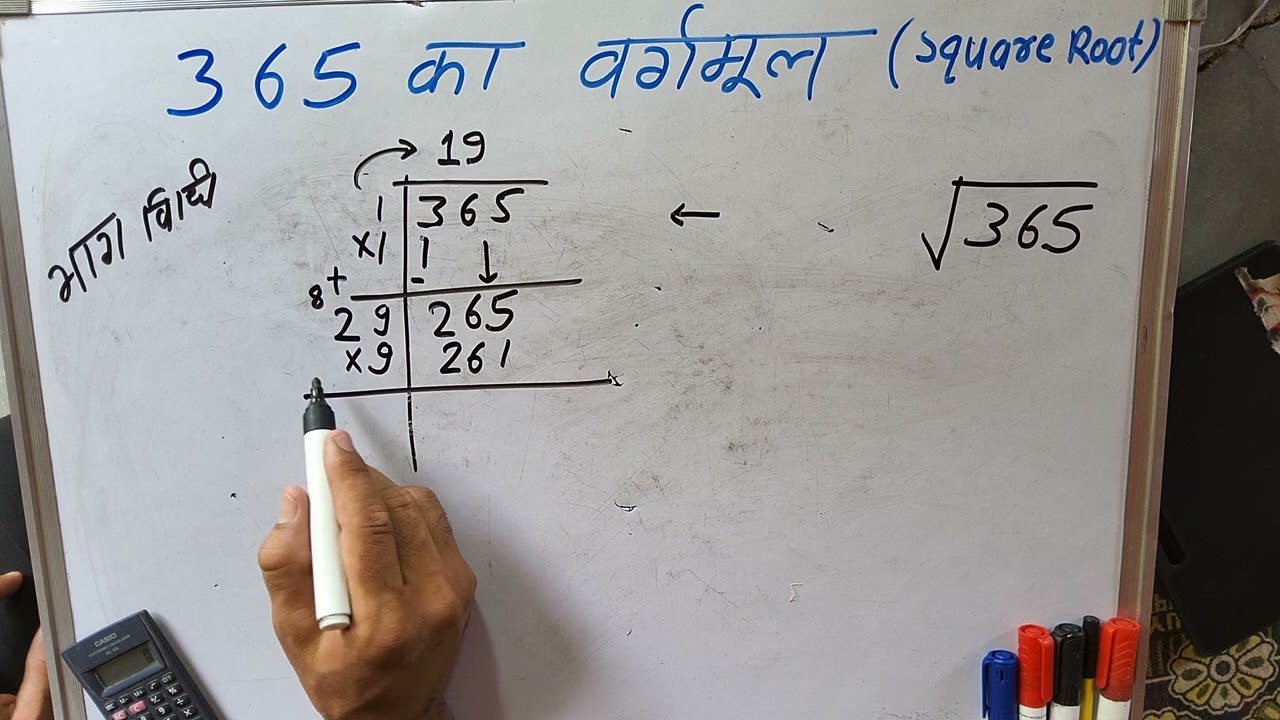 365 का वर्गमूल (Square Root)
भाग विधी
19
1 365
×1 1
+ -
8
29 265
×9 261
← √365
CASIO